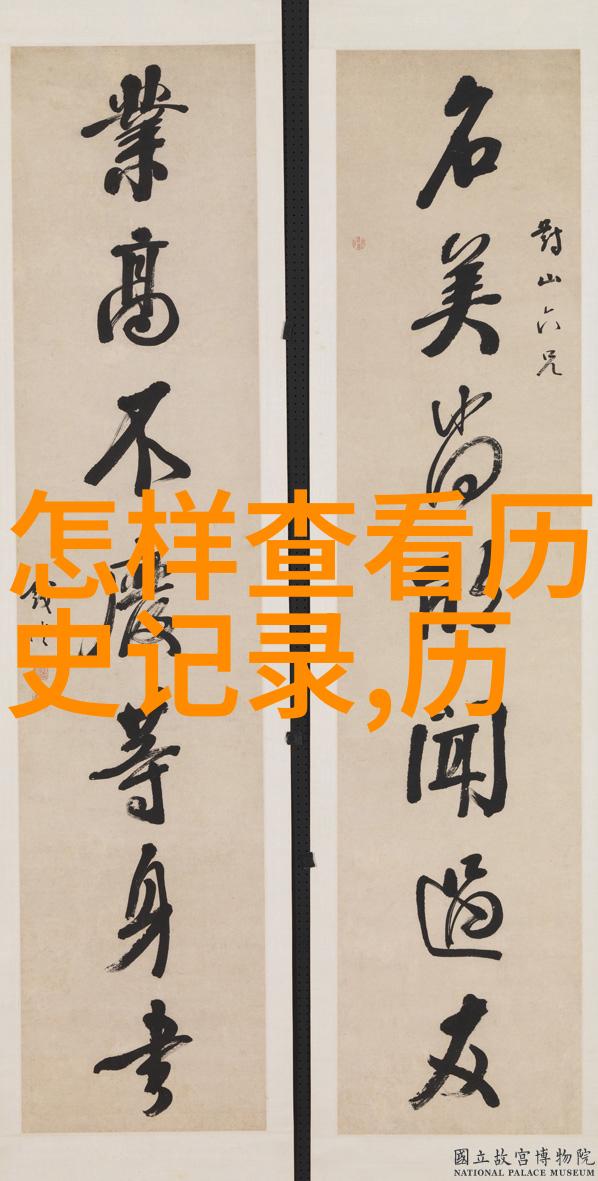 怎样查看历
史记录,历
對山六兄
名美尚聞過友
業高不廢等身書
國立故宮博物院
NATIONAL PALACE MUSEUM